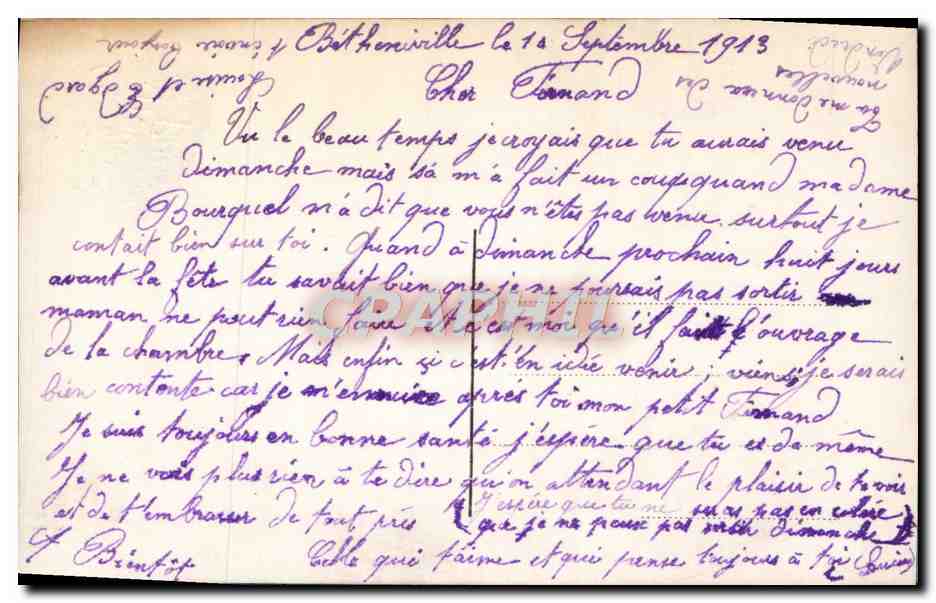 Bétheniville le 10 Septembre 1913
Cher Fernand
Vu le beau temps je croyais que tu aurais venu
dimanche mais sá m'á fait un coup quand madame
Bourquel m'á dit que vous n'êtes pas venu surtout je
contait bien sur toi. Quand á dimanche prochain huit jours
avant la fête tu savait bien que je ne pourrais pas sortir
maman ne peut rien faire et c'est moi qu'il fait l'ouvrage
de la chambre. Mais enfin si c'est t'en idée venir, viens, je serais
bien contente car je m'ennuie aprés toi mon petit Fernand
Je suis toujours en bonne santé j'espére que tu es de même
Je ne vois plus rien á te dire qu'on attendant le plaisir de te voir
et de t'embrasser de tout prés
(J'espére que tu ne seras pas en colére
que je ne peux pas sortir dimanche)
A Bientôt
Celle qui t'aime et qui pense toujours á toi
Tu me donnera des
nouvelles
Vendredi
Louise et Edgard
CPAPHIL